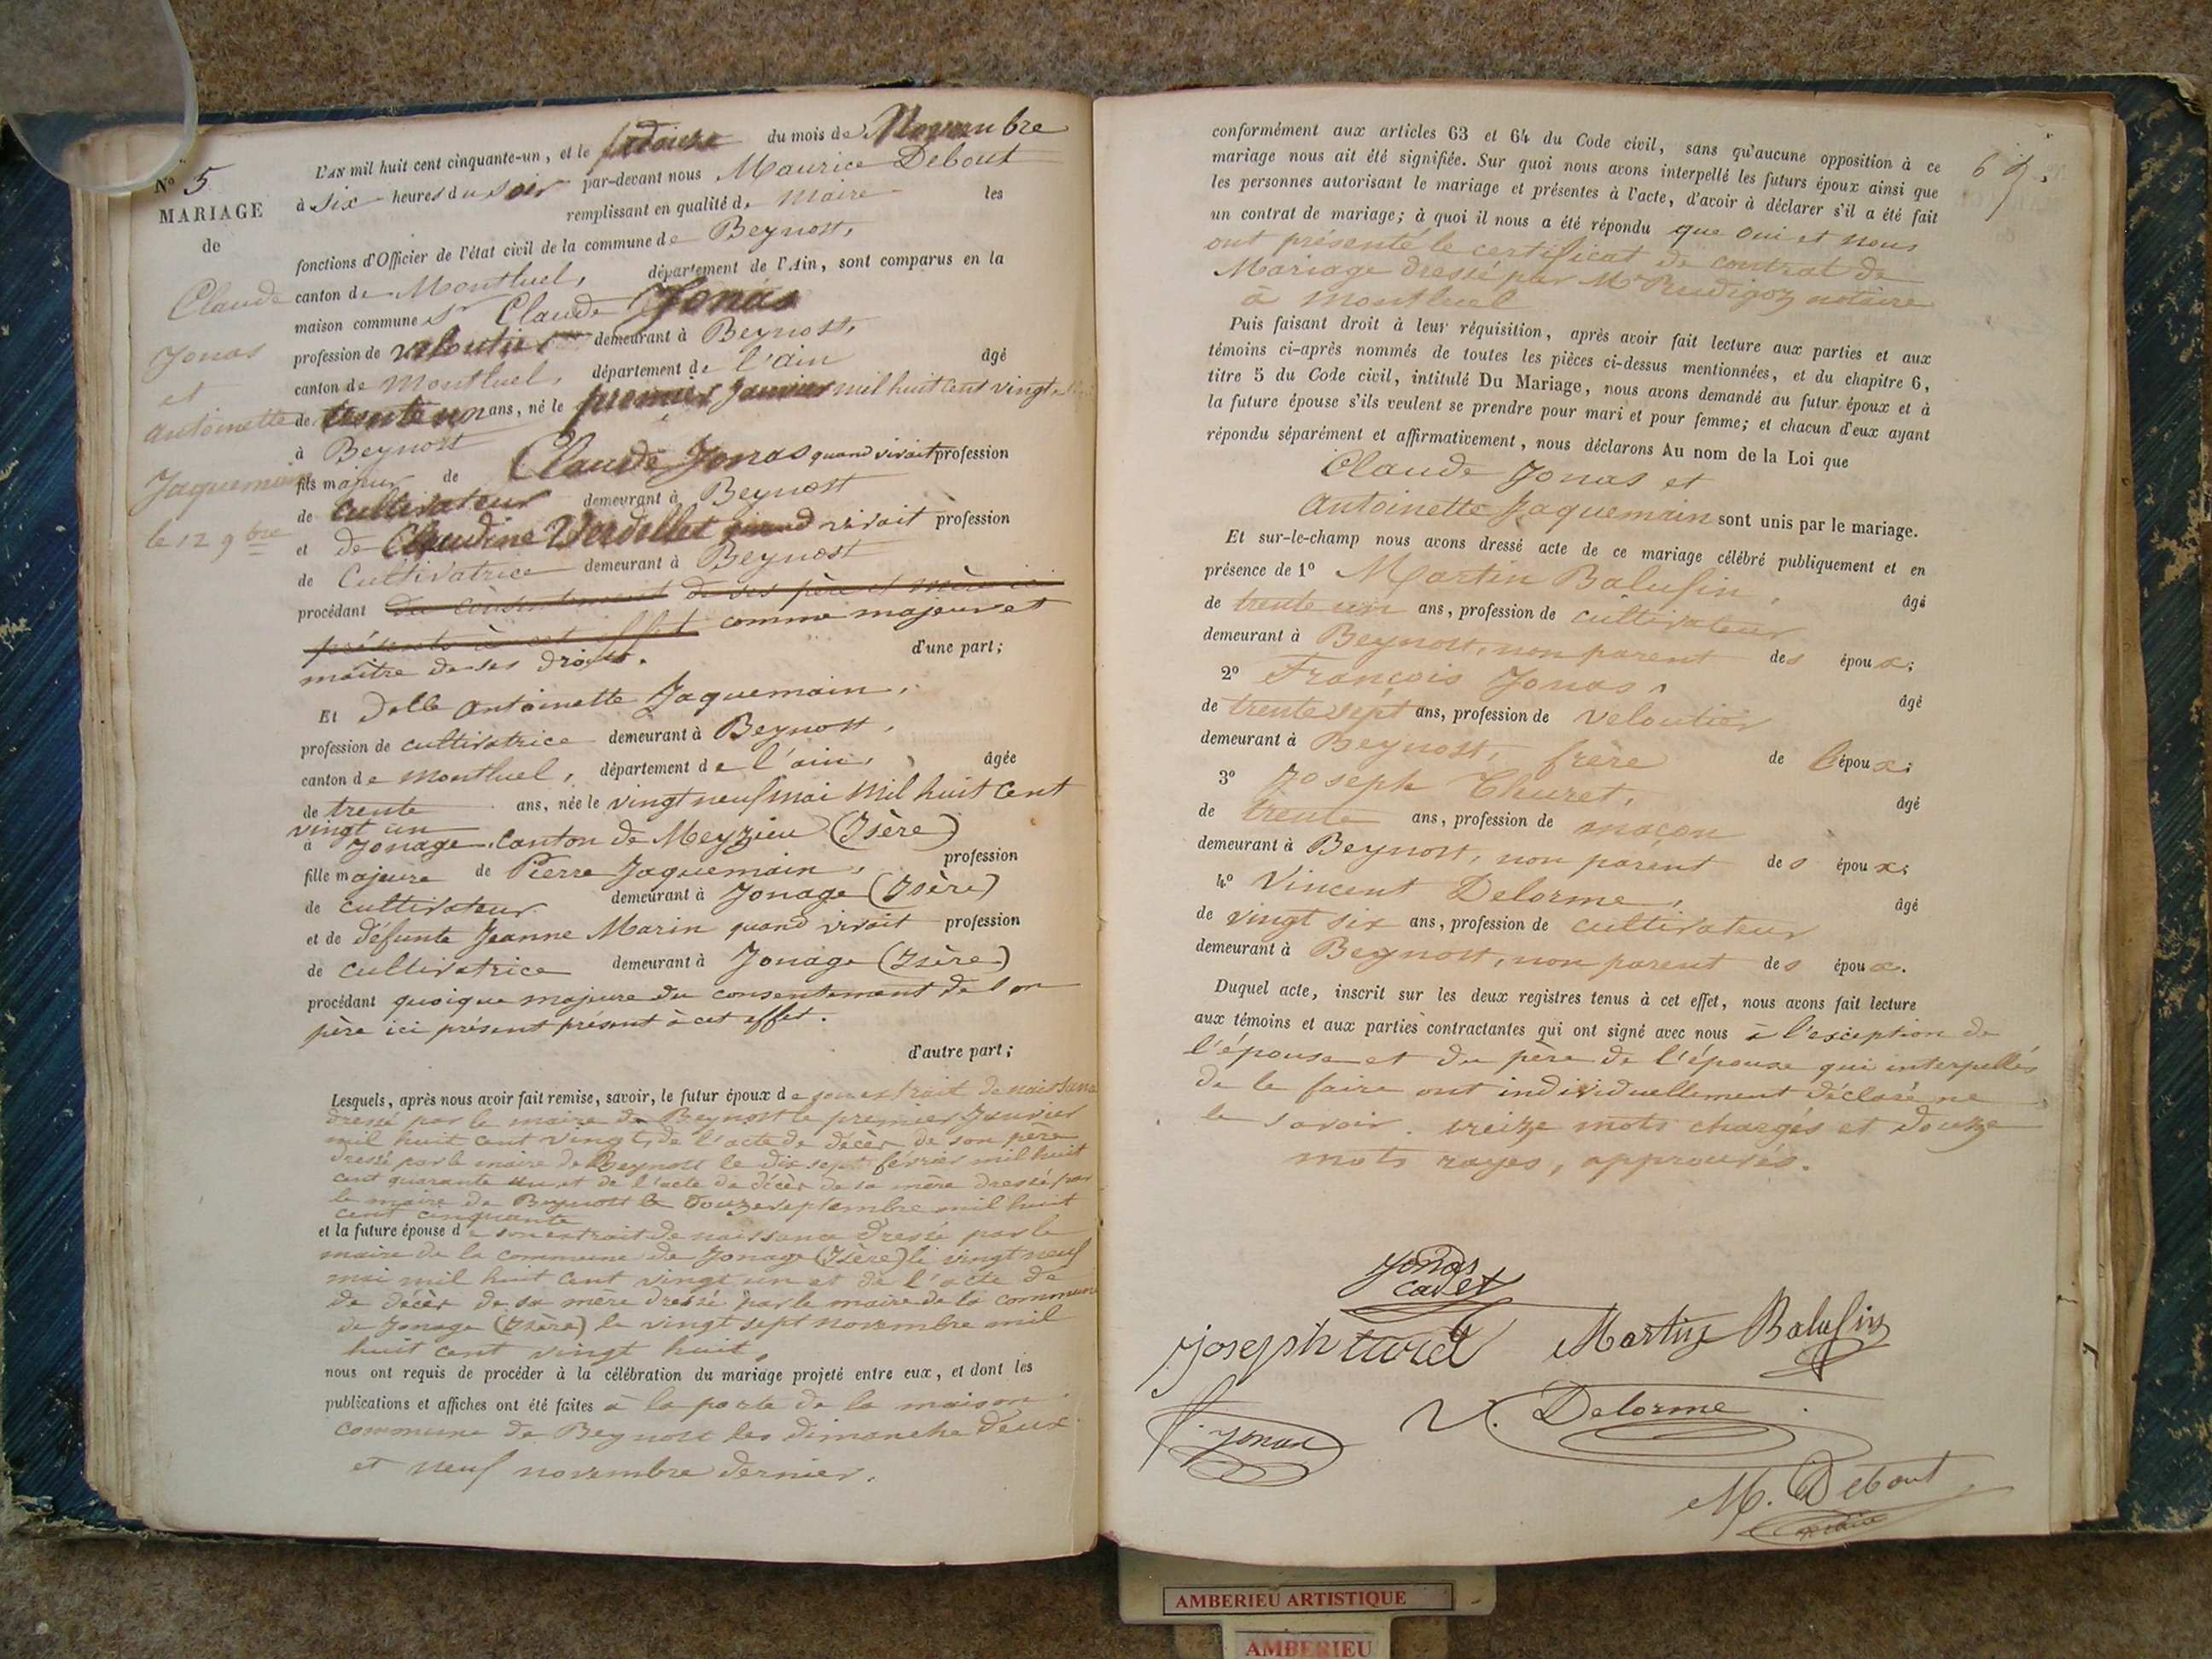 N° 5
MARIAGE
de
Claude
Jonas
et
antoinette
Jaquemain
le 12 9bre
L'AN mil huit cent cinquante-un, et le douze du mois de Novembre
à six heures du soir par-devant nous Maurice Debout
remplissant en qualité de Maire les
fonctions d'Officier de l'état civil de la commune de Beynost,
canton de Montluel, département de l'Ain, sont comparus en la
maison commune Sr Claude Jonas
profession de veloutier demeurant à Beynost,
canton de Montluel, département de l'ain âgé
de trente un ans, né le premier Janvier mil huit cent vingt
à Beynost
fils majeur de Claude Jonas quand vivait profession
de cultivateur demeurant à Beynost
et de Claudine Verdellet quand vivait profession
de Cultivatrice demeurant à Beynost
procédant du consentement de ses père et mère ici
présents à cet effet comme majeur et
maître de ses droits. d'une part;
Et Delle antoinette Jaquemain,
profession de cultivatrice demeurant à Beynost,
canton de Montluel, département de l'ain, âgée
de trente ans, née le vingt neuf mai Mil huit Cent
vingt un
à Jonage, Canton de Meyzieu (Isère)
fille majeure de Pierre Jaquemain, profession
de cultivateur demeurant à Jonage (Isère)
et de défunte Jeanne Marin quand vivait profession
de cultivatrice demeurant à Jonage (Isère)
procédant quoique majeure du consentement de son
père ici présent présent à cet effet.
d'autre part;
Lesquels, après nous avoir fait remise, savoir, le futur époux de son extrait de naissance
dressé par le maire de Beynost le premier Janvier
mil huit cent vingt, de l'acte de décès de son père
dressé par le maire de Beynost le dix sept février mil huit
cent quarante un et de l'acte de décès de sa mère dressé par
le maire de Beynost le douze septembre mil huit
cent cinquante
et la future épouse de son extrait de naissance dressé par le
maire de la commune de Jonage (Isère) le vingt neuf
mai mil huit cent vingt un et de l'acte de
de décès de sa mère dressé par le maire de la commune
de Jonage (Isère) le vingt sept novembre mil
huit cent vingt huit,
nous ont requis de procéder à la célébration du mariage projeté entre eux, et dont les
publications et affiches ont été faites à la porte de la maison
commune de Beynost les dimanche deux
et neuf novembre dernier.
conformément aux articles 63 et 64 du Code civil, sans qu'aucune opposition à ce
mariage nous ait été signifiée. Sur quoi nous avons interpellé les futurs époux ainsi que
les personnes autorisant le mariage et présentes à l'acte, d'avoir à déclarer s'il a été fait
un contrat de mariage; à quoi il nous a été répondu que oui et nous
ont présenté le certificat de contrat de
Mariage dressé par Me Rudigoz notaire
à Montluel
Puis faisant droit à leur réquisition, après avoir fait lecture aux parties et aux
témoins ci-après nommés de toutes les pièces ci-dessus mentionnées, et du chapitre 6,
titre 5 du Code civil, intitulé Du Mariage, nous avons demandé au futur époux et à
la future épouse s'ils veulent se prendre pour mari et pour femme; et chacun d'eux ayant
répondu séparément et affirmativement, nous déclarons Au nom de la Loi que
Claude Jonas et
Antoinette Jaquemain sont unis par le mariage.
Et sur-le-champ nous avons dressé acte de ce mariage célébré publiquement et en
présence de 1° Martin Balufin, âgé
de trente un ans, profession de cultivateur
demeurant à Beynost, non parent des époux;
2° François Jonas, âgé
de trente sept ans, profession de veloutier
demeurant à Beynost, frère de l'époux;
3° Joseph Thuret, âgé
de trente ans, profession de maçon
demeurant à Beynost, non parent des époux;
4° Vincent Delorme, âgé
de vingt six ans, profession de cultivateur
demeurant à Beynost, non parent des époux.
Duquel acte, inscrit sur les deux registres tenus à cet effet, nous avons fait lecture
aux témoins et aux parties contractantes qui ont signé avec nous à l'exception de
l'épouse et du père de l'épouse qui interpellés
de le faire ont individuellement déclaré ne
le savoir. treize mots chargés et douze
mots rayés, approuvés.
Jonas
cadet
Joseph turet Martin Balufin
f. Jonas V. Delorme
M. Debout
maire
AMBERIEU ARTISTIQUE
AMBERIEU